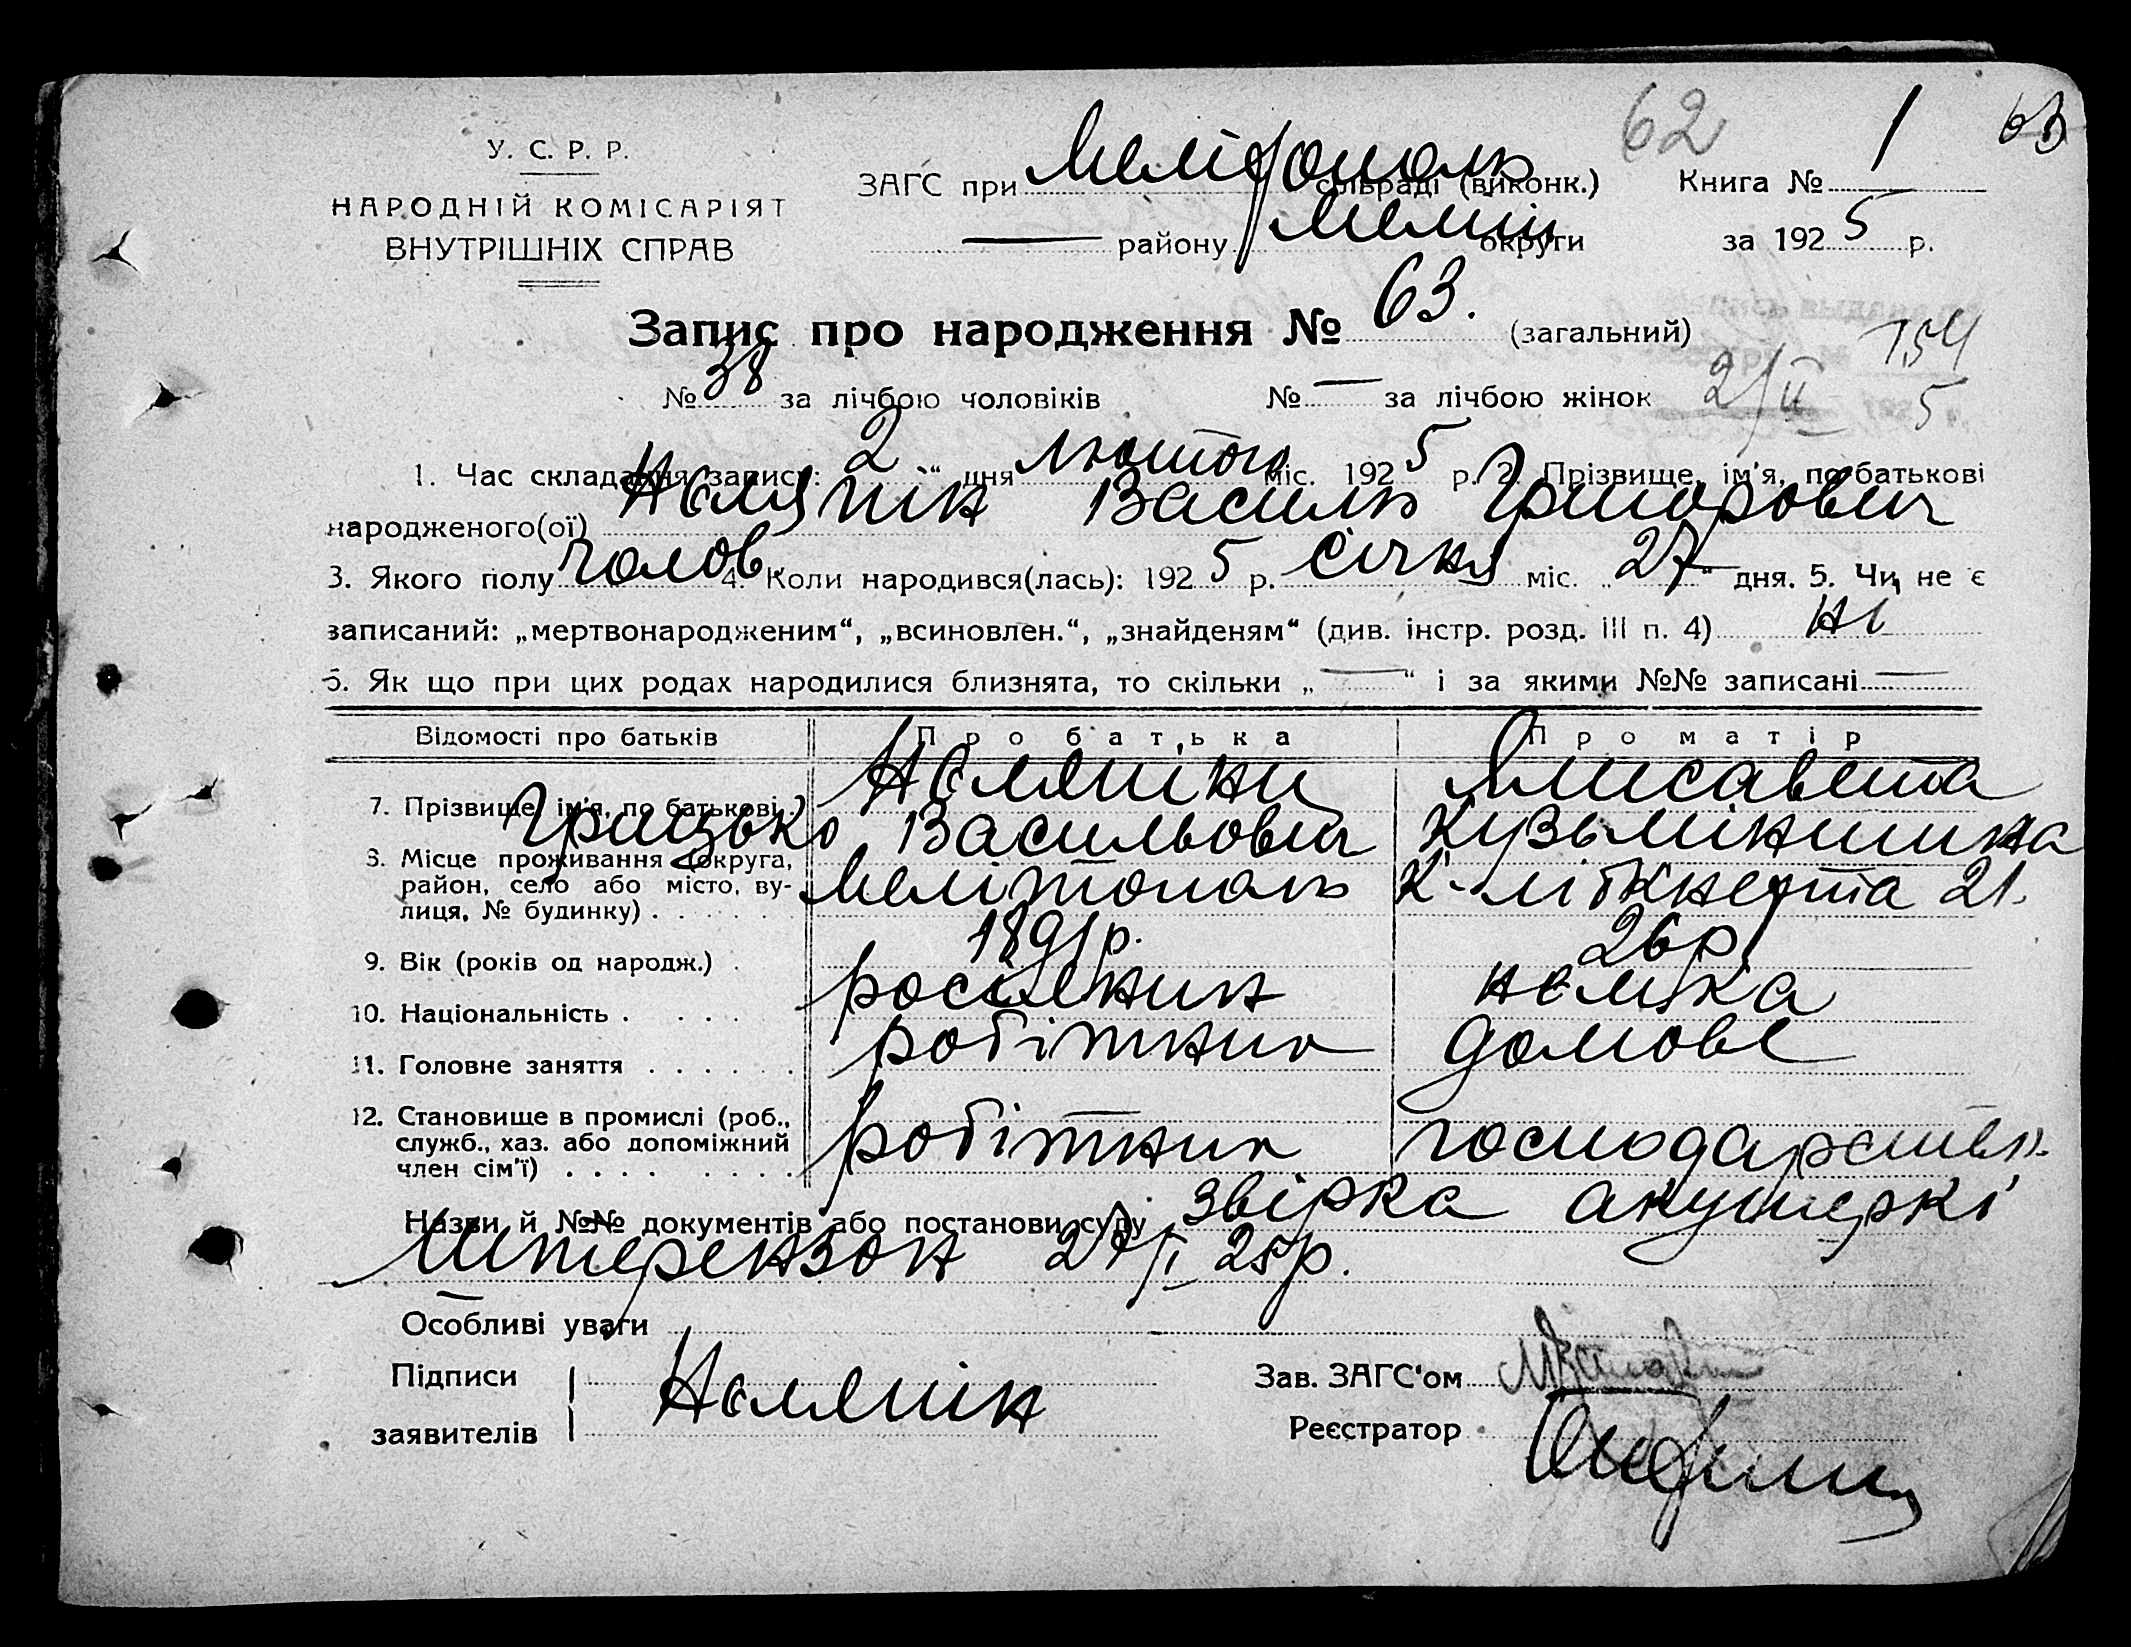 62 1 63
У. С. Р. Р.
НАРОДНІЙ КОМІСАРІЯТ
ВНУТРІШНІХ СПРАВ
ЗАГС при Мелітополь сільраді (виконк.) Книга № 1
— району Меліт округи за 1925 р.
Запис про народження № 63. (загальний)
154
№ 38 за лічбою чоловіків № — за лічбою жінок 2/II 5
1. Час складання запису: „2“ дня лютого міс. 1925 р. 2. Прізвище, ім'я, по батькові
народженого(ої) Василь Григорович
3. Якого полу чолов. 4. Коли народився(лась): 1925 р. січня міс. „27“ дня. 5. Чи не є
записаний: „мертвонародженим“, „всиновлен.“, „знайденям“ (див. інстр. розд. III п. 4) ні
6. Як що при цих родах народилися близнята, то скільки „—“ і за якими №№ записані —
Відомості про батьків Про батька Про матір
7. Прізвище, ім'я, по батькові Грицько Васильович Єлисавета Кузьмінишна
8. Місце проживання (округа, район, село або місто, вулиця, № будинку) . . . . . Мелітополь К-Лібкнехта 21.
9. Вік (років од народж.) . 1891р. 26р.
10. Національність . . . . росіянин німка
11. Головне заняття . . . . . . робітник домове
12. Становище в промислі (роб., служб., хаз. або допоміжний член сім'ї) . . . . . . . . робітник господарств.
Назви й №№ документів або постанови суду звірка акушеркі
Штерензон 27/I 25р.
Особливі уваги
Підписи
заявителів
Зав. ЗАГС'ом
Реєстратор